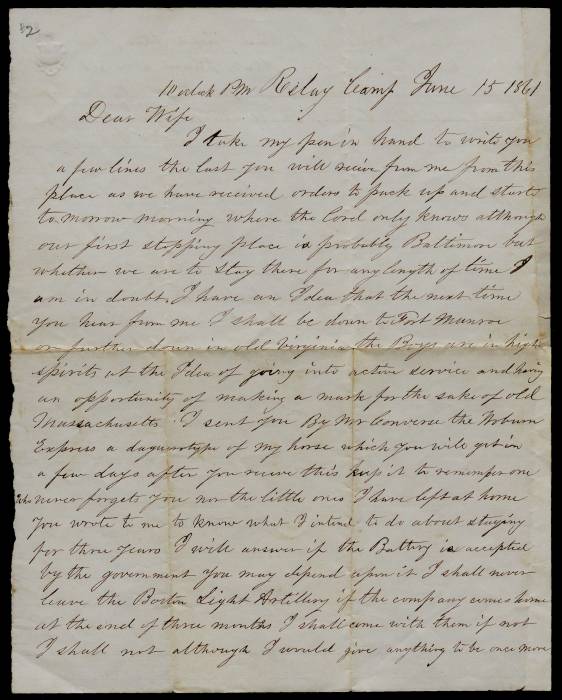 82
10 oclock P.M Relay Camp June 15 1861
Dear Wife
I take my pen in hand to write you
a few lines the last you will receive from me from this
place as we have received orders to pack up and start
to morrow morning where the Lord only knows although
our first stopping place is probably Baltimore but
whether we are to stay there for any length of time I
am in doubt, I have an Idea that the next time
you hear from me I shall be down to Fort Munroe
or further down in old Virginia the Boys are in high
spirits at the Idea of going into active service and having
an opportunity of making a mark for the sake of old
Massachusetts I sent you By Mr Converse the Woburn
Express a daguerotype of my horse which you will get in
a few days after you receive this keep it to remember one
who never forgets you nor the little ones I have left at home
You wrote to me to know what I intend to do about staying
for three years I will answer if the Battery is accepted
by the government you may depend upon it I shall never
leave the Boston Light Artillery if the company comes home
at the end of three months I shall come with them if not
I shall not although I would give anything to be once more